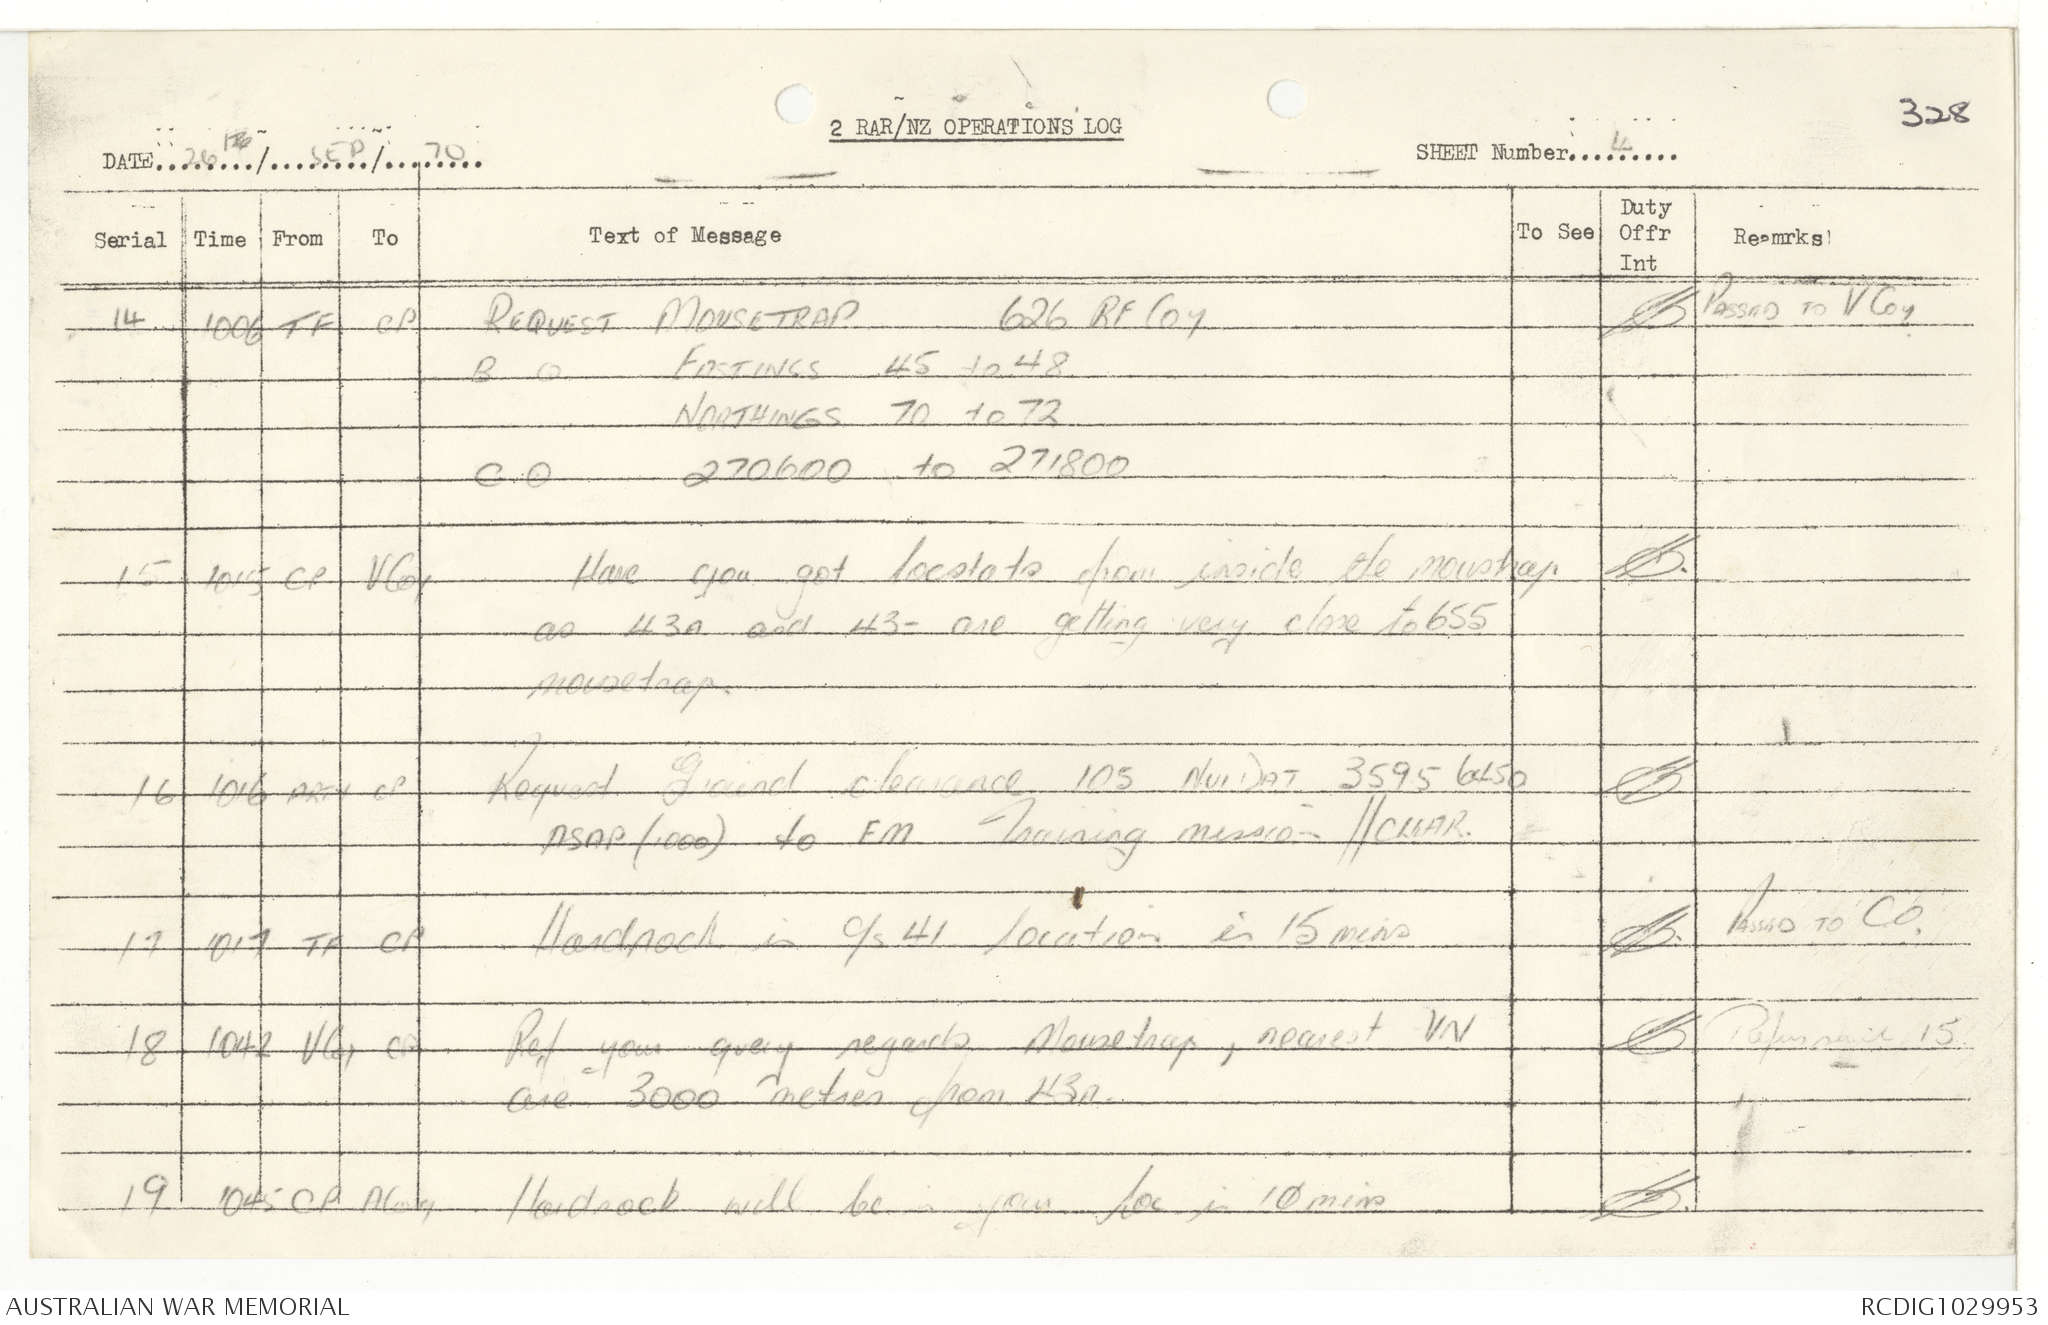 328
2 RAR/NZ OPERATIONS LOG
DATE 26th / SEP / 70 SHEET Number 4
Serial Time From To Text of Message To See Duty Offr Int Reamrks
14 1006 TF CP REQUEST MOUSETRAP 626 RF Coy PASSED TO V Coy
B O EASTINGS 45 to 48
NORTHINGS 70 to 72
C O 270600 to 271800
15 1015 CP V Coy Have you got locstats from inside the moustrap
as 43A and 43- are getting very close to 655
mousetrap.
16 1016 ARTY CP Request Ground clearance 105 NUI DAT 3595 6650
ASAP (1000) to EM Training mission // CLEAR.
17 1017 TF CP Hardrock in C/s 41 location in 15 mins PASSED TO CO.
18 1042 V Coy CP Ref your query regards Mousetrap, nearest VN 15
are 3000 metres from 43A.
19 1045 CP A Coy Hardrock will be in your loc in 10 mins
AUSTRALIAN WAR MEMORIAL RCDIG1029953